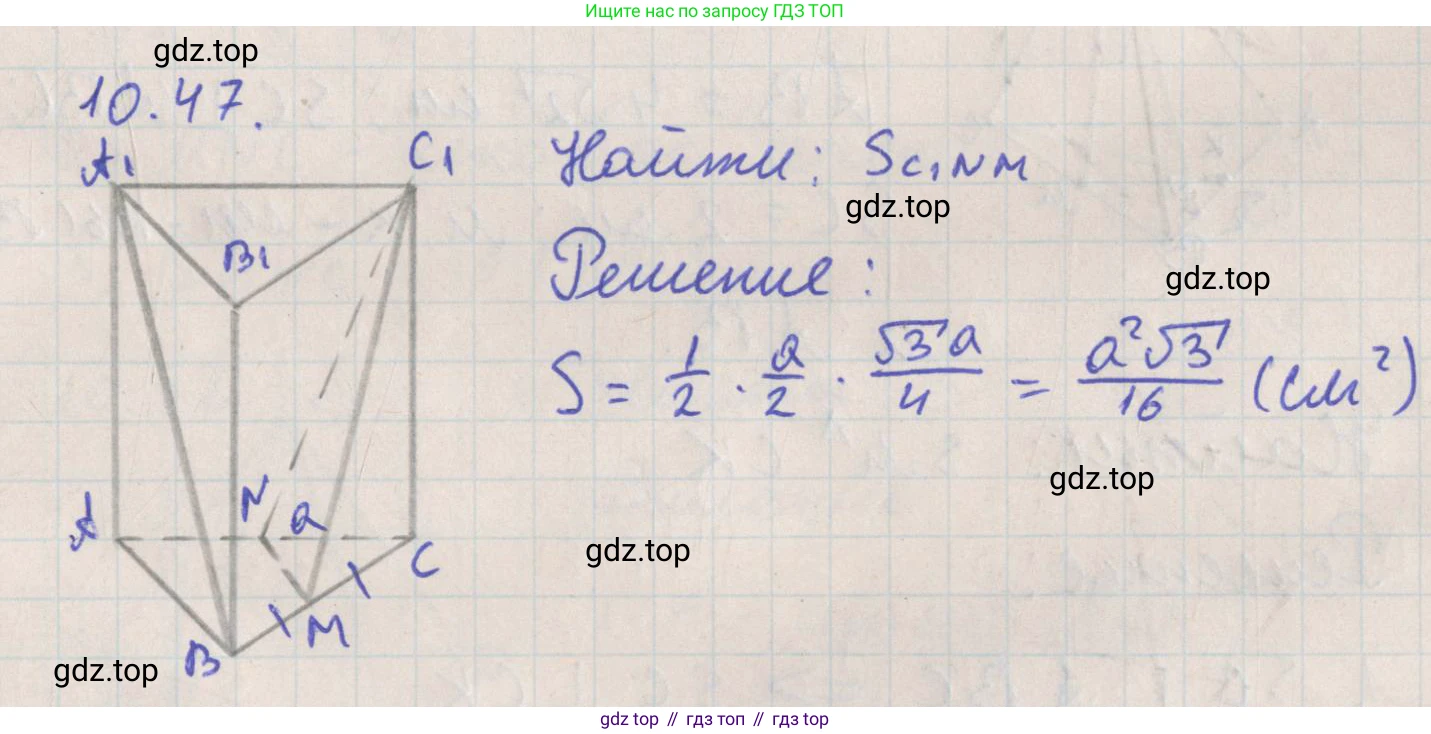 Ищите нас по запросу ГДЗ ТОП
gdz.top
10.47.
A₁ C₁
Найти: S C₁NM
gdz.top
B₁
Решение:
gdz.top
S = 1/2 · a/2 · √3a/4 = a²√3/16 (см²)
gdz.top
N a
A C
gdz.top
M
B
gdz.top
gdz top // гдз топ // gdz top